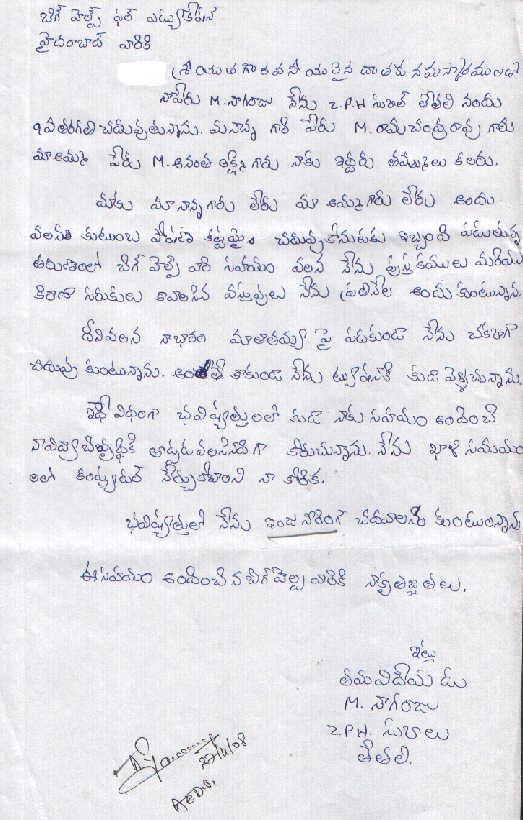 బిగ్ హెల్ప్స్ ఫర్ ఎడ్యుకేషన్
హైదరాబాద్ వారికి
శ్రీయుత గౌరవనీయులైన దాతకు నమస్కారములతో
నాపేరు M. నాగరాజు నేను Z.P.H స్కూల్ తేతలి నందు
9వ తరగతి చదువుతున్నాను. మా నాన్న గారి పేరు M. రామచంద్రరావు గారు
మా అమ్మ పేరు M. అనంత లక్ష్మి గారు నాకు ఇద్దరు తమ్ముళ్లు కలరు.
మాకు మా నాన్నగారు లేరు మా అమ్మగారు లేరు అందు
వలన కుటుంబ పోషణ కష్టమై చదువుకొనుటకు ఇబ్బంది పడుతున్న
తరుణంలో బిగ్ హెల్ప్ వారి సహాయం వలన నేను పుస్తకములు మరియు
కిరాణా సరుకులు కావలసిన వస్తువులు నేను ప్రతినెల అందుకుంటున్నాను.
దీనివలన నా భారం మా తాతయ్య పై పడకుండా నేను చక్కగా
చదువుకుంటున్నాను. అంతే కాకుండా నేను ట్యూషన్‌కి కూడా వెళ్ళుచున్నాను.
ఇదే విధంగా భవిష్యత్తులలో కూడా నాకు సహాయం అందించి
నా విద్యాభివృద్ధికి తోడ్పడవలసినదిగా కోరుచున్నాను. నేను ఖాళీ సమయం
లలో కంప్యూటర్ నేర్చుకోవాలని నా కోరిక.
భవిష్యత్తులో నేను ఇంజనీరింగ్ చదవాలని అనుకుంటున్నాను
ఈ సహాయం అందించిన బిగ్ హెల్ప్ వారికి నా కృతజ్ఞతలు.
ఇట్లు
తమ విదేయుడు
M. నాగరాజు
Z.P.H. స్కూలు
తేతలి.